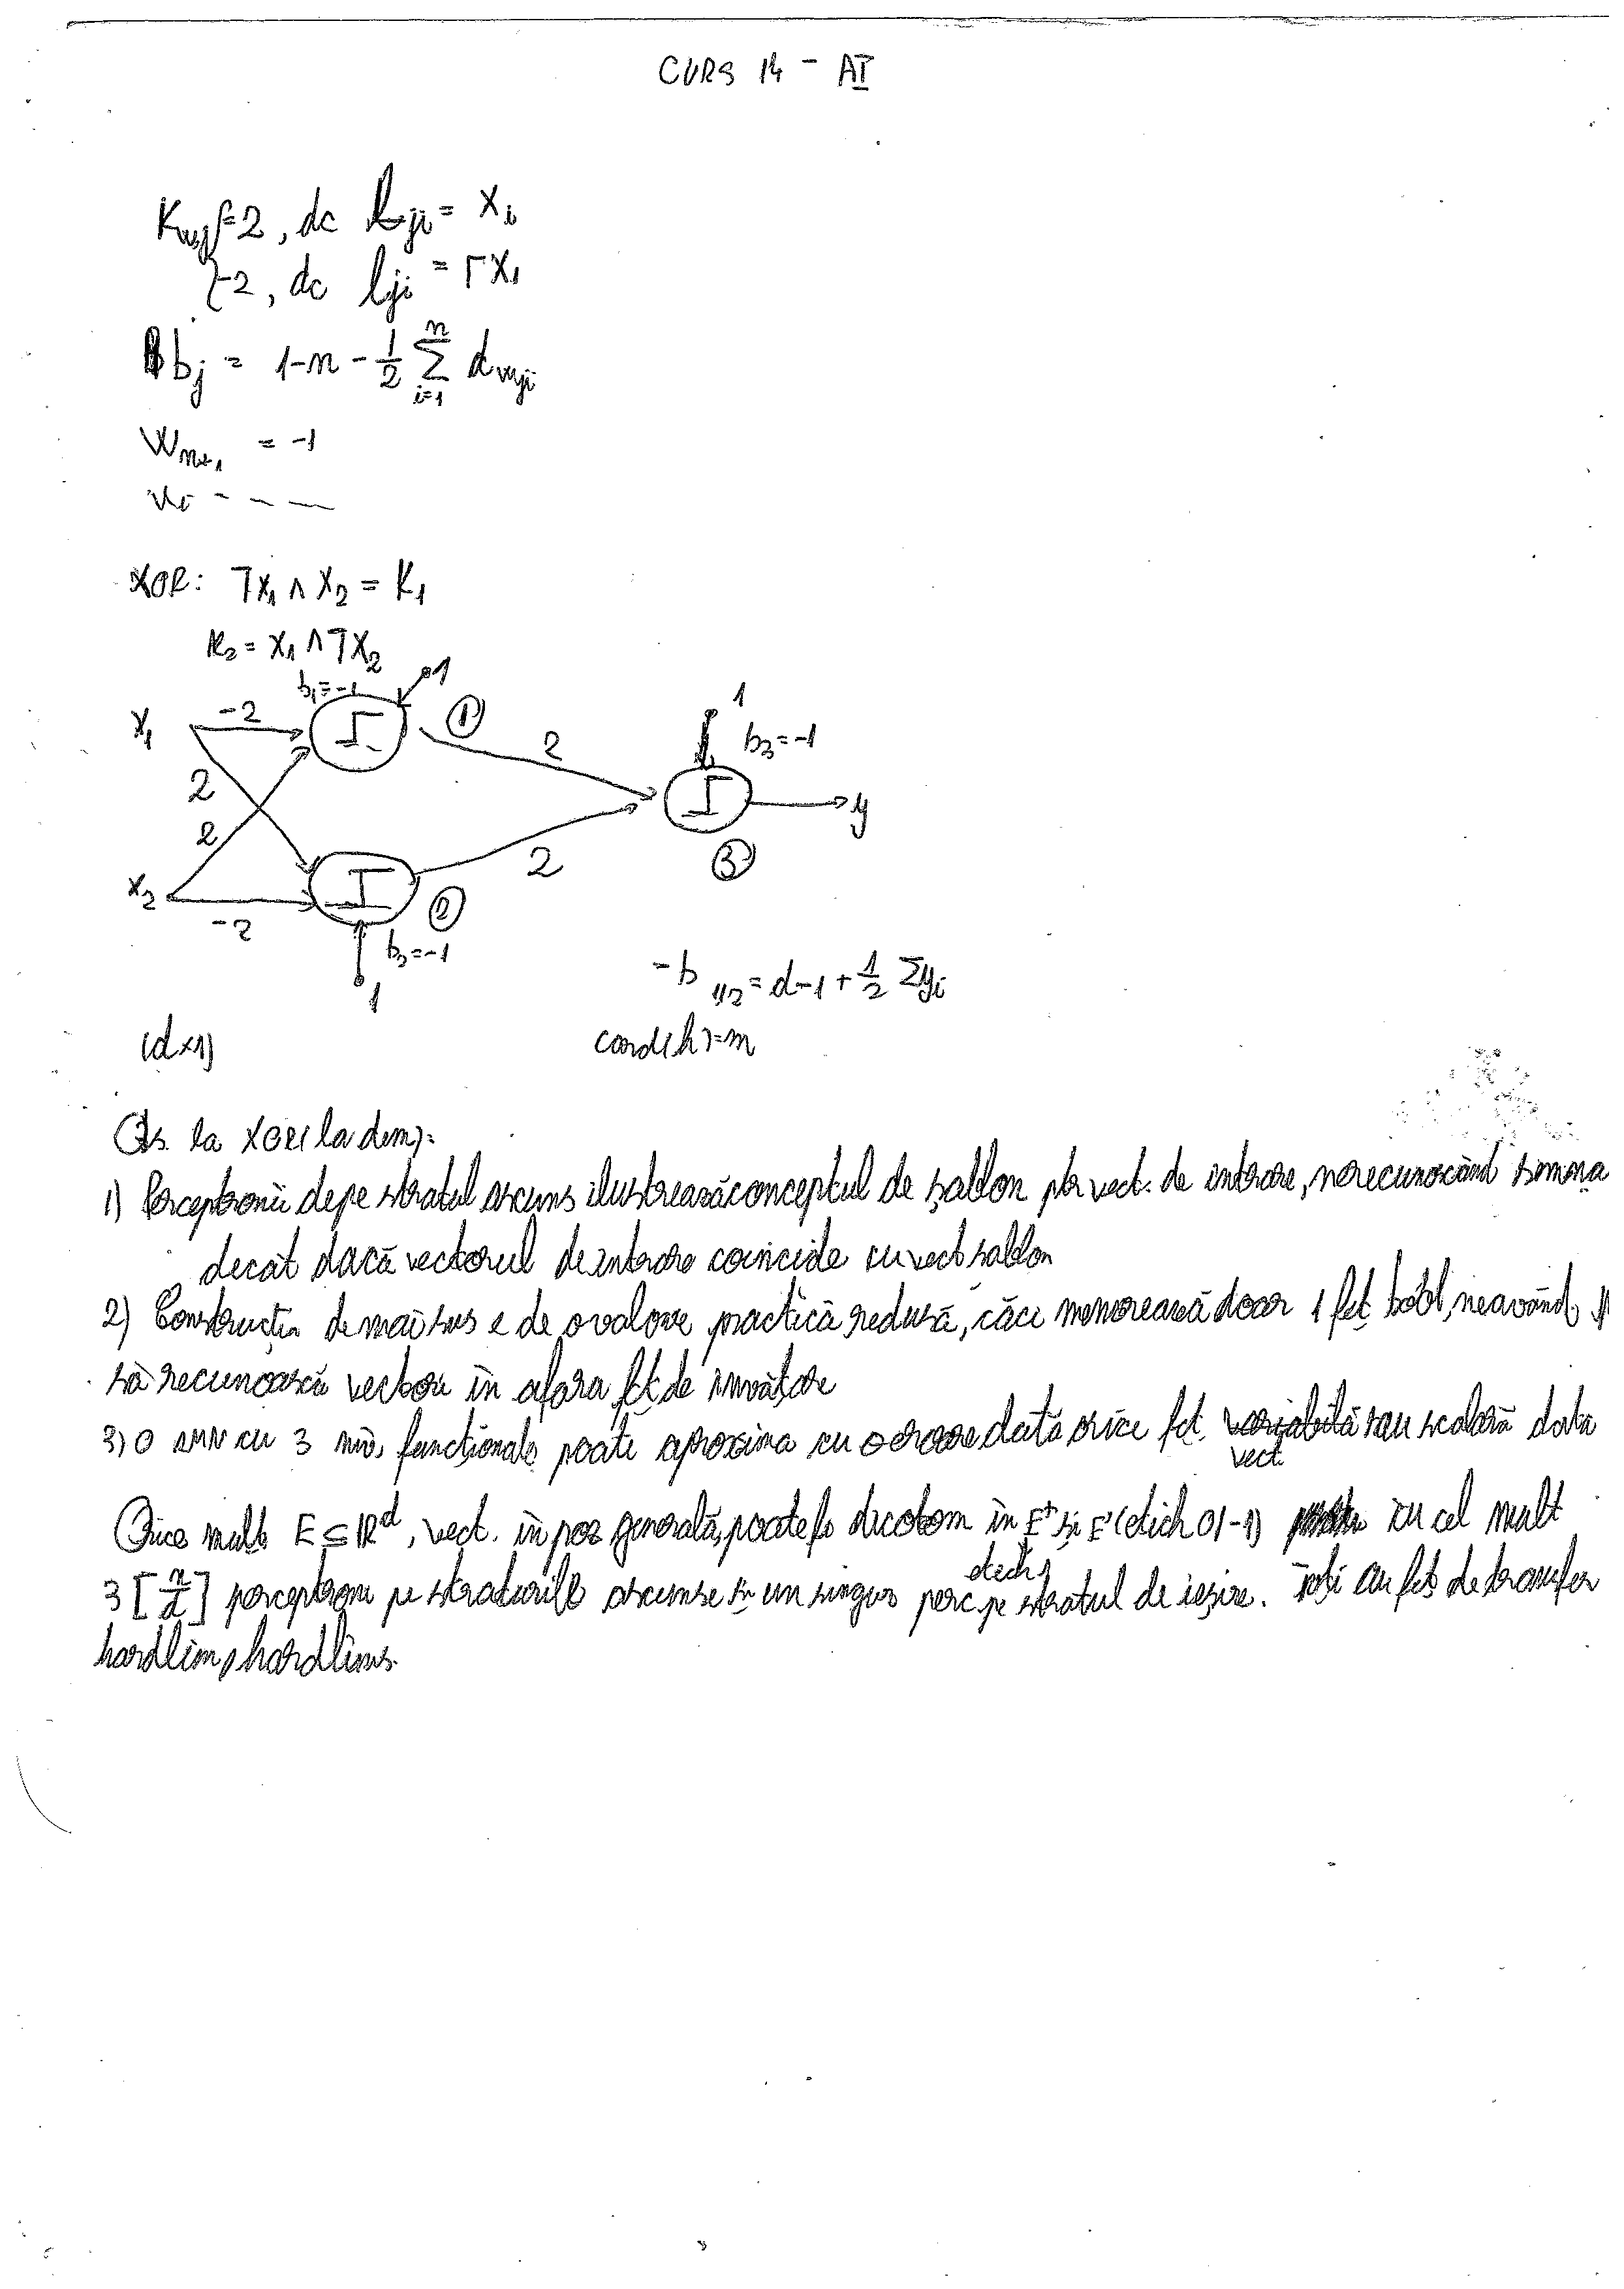 CURS 14 - AI
2, dc lji = xi
-2, dc lji = ⌐x1
bj = 1-n - 1/2 Σ i=1 n αwji
Wn+1 = -1
XOR: ⌐x1 ∧ x2 = K1
K2 = x1 ∧ ⌐x2
b1=-1
1
x1 -2 1 2
1
b3=-1
2
2
y
x2 -2 2 2 3
b2=-1
1
-b = d-1 + 1/2 Σyi
(d×1) card(h)=m
Obs. la XOR (la dem):
1) Perceptronii de pe stratul ascuns ilustrează conceptul de șablon ptr vect. de intrare, nerecunoscând
decât dacă vectorul de intrare coincide cu vect șablon
2) Construcția de mai sus e de o valoare practică redusă, căci memorează doar 1 fct bool, neavând
să recunoască vectori în afara fct de învățare
3) O cu 3 niv. funcționale poate aproxima cu o eroare dată orice fct. sau scalară dată
vect.
Orice mult E ⊆ R^d, vect. în poz generală, poate fi dicotom în E+ și E- (dich 0/-1) cu cel mult
3 [n/d] perceptroni pe straturile ascunse și un singur perc. pe stratul de ieșire. Toți au fct de transfer
hardlim, hardlims.